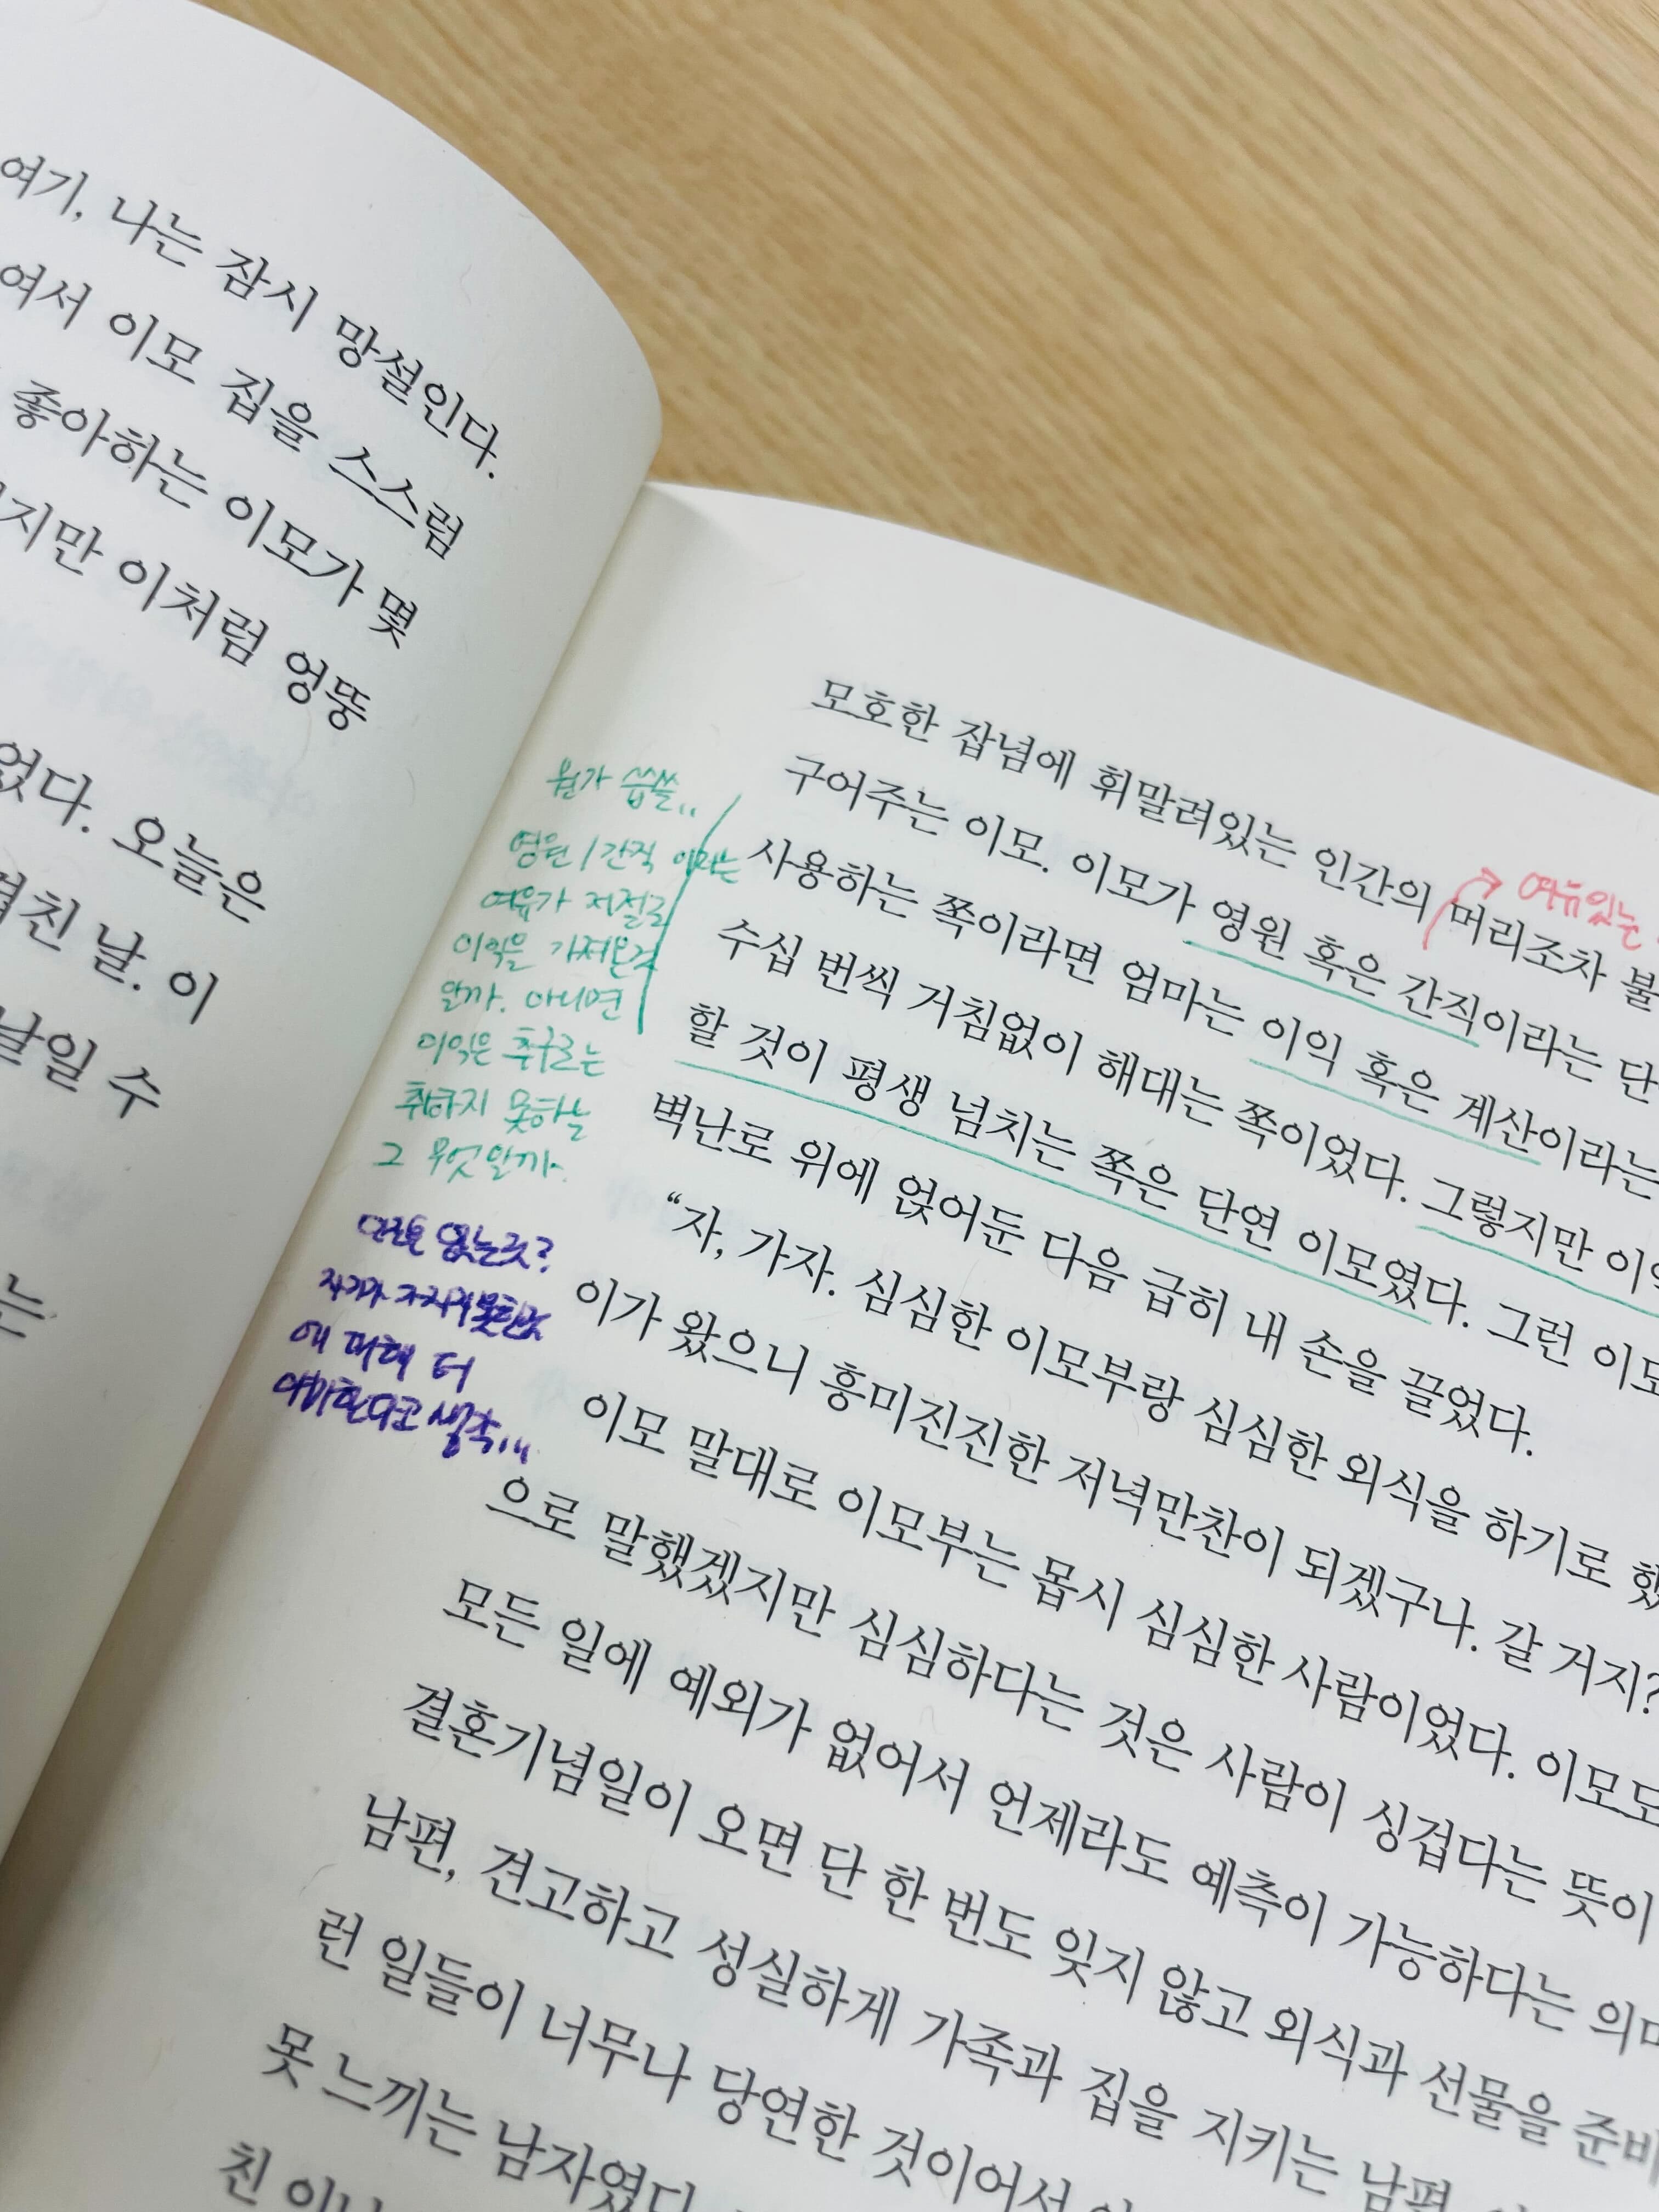 여기, 나는 잠시 망설인다.
여서 이모 집을 스스럼
좋아하는 이모가 몇
지만 이처럼 엉뚱
었다. 오늘은
겹친 날. 이
날일 수
는
모호한 잡념에 휘말려있는 인간의 머리조차 불
구어주는 이모. 이모가 영원 혹은 간직이라는 단
사용하는 쪽이라면 엄마는 이익 혹은 계산이라는
수십 번씩 거침없이 해대는 쪽이었다. 그렇지만 이익
할 것이 평생 넘치는 쪽은 단연 이모였다. 그런 이모
벽난로 위에 얹어둔 다음 급히 내 손을 끌었다.
“자, 가자. 심심한 이모부랑 심심한 외식을 하기로 했
이가 왔으니 흥미진진한 저녁만찬이 되겠구나. 갈 거지?
이모 말대로 이모부는 몹시 심심한 사람이었다. 이모도
으로 말했겠지만 심심하다는 것은 사람이 싱겁다는 뜻이
모든 일에 예외가 없어서 언제라도 예측이 가능하다는 의미
결혼기념일이 오면 단 한 번도 잊지 않고 외식과 선물을 준비
남편, 견고하고 성실하게 가족과 집을 지키는 남편,
런 일들이 너무나 당연한 것이어서
못 느끼는 남자였다.
친
여유있는
뭔가 씁쓸..
영원/간직 이라는
여유가 저절로
이익을 가져온걸
알까. 아니면
이익은 추구로는
취하지 못하는
그 무엇일까.
없는것?
자기가 가지지못한것
에 대해 더
야박한다고 생각...